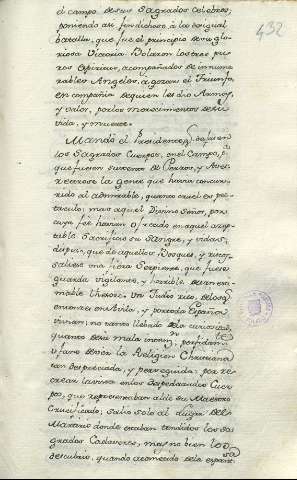 432
el campo de sus Sagrados celebros,
poniendo assi fin dichoso à la desigual
batalla, que fue el principio de su glo-
riosa Victoria. Volaron los tres pu-
ros Espiritus, acompañados de innume-
rables Angeles, a gozar el Triunfo,
en compañia de quien les dio Animo,
y valor, por los merecimientos de su
vida, y muerte.
Mandó el Presidente dejassen
los Sagrados Cuerpos, en el Campo, p.ª
que fuessen sustento de Perros, y Aves:
retirose la gente que havia concurr-
rido al admirable, quanto cruel es pec-
taculo; mas aquel Divino Señor, por
cuya fe havian ofrecido en aquel
tible Sacrificio su Sangre, y vidas,
dispuso, que de aquellos Bosques, y riscos
saliesse una fiera Serpiente, que fuesse
guarda vigilante, y horrible de aquel ama-
mable thesoro. Un Judio rico, de los q.
entonces en Avila, y por toda España
vivian; no menos llebado de la curiosidad,
quanto de su mala intenz.n porfidam.te
ufano de ver la Religion Christiana
tan despreciada, y perseguida: por re-
crear la vista en los despedazados Cuer-
pos, que representaban al de su Maestro
Crucificado, salio solo al Lugar del
Martirio donde estaban tendidos los sa-
grados Cadaveres, mas no bien los
descubrio, quando acometido de la espant-